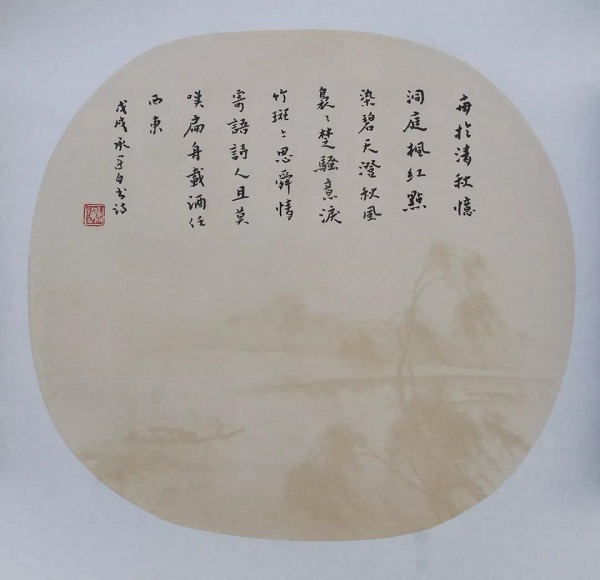 每於清秋憶
洞庭楓紅點
染碧天澄秋風
裊〻楚騷意淚
竹斑〻思舜情
寄語詩人且莫
嘆扁舟載酒任
西東
戊戌承平自书诗